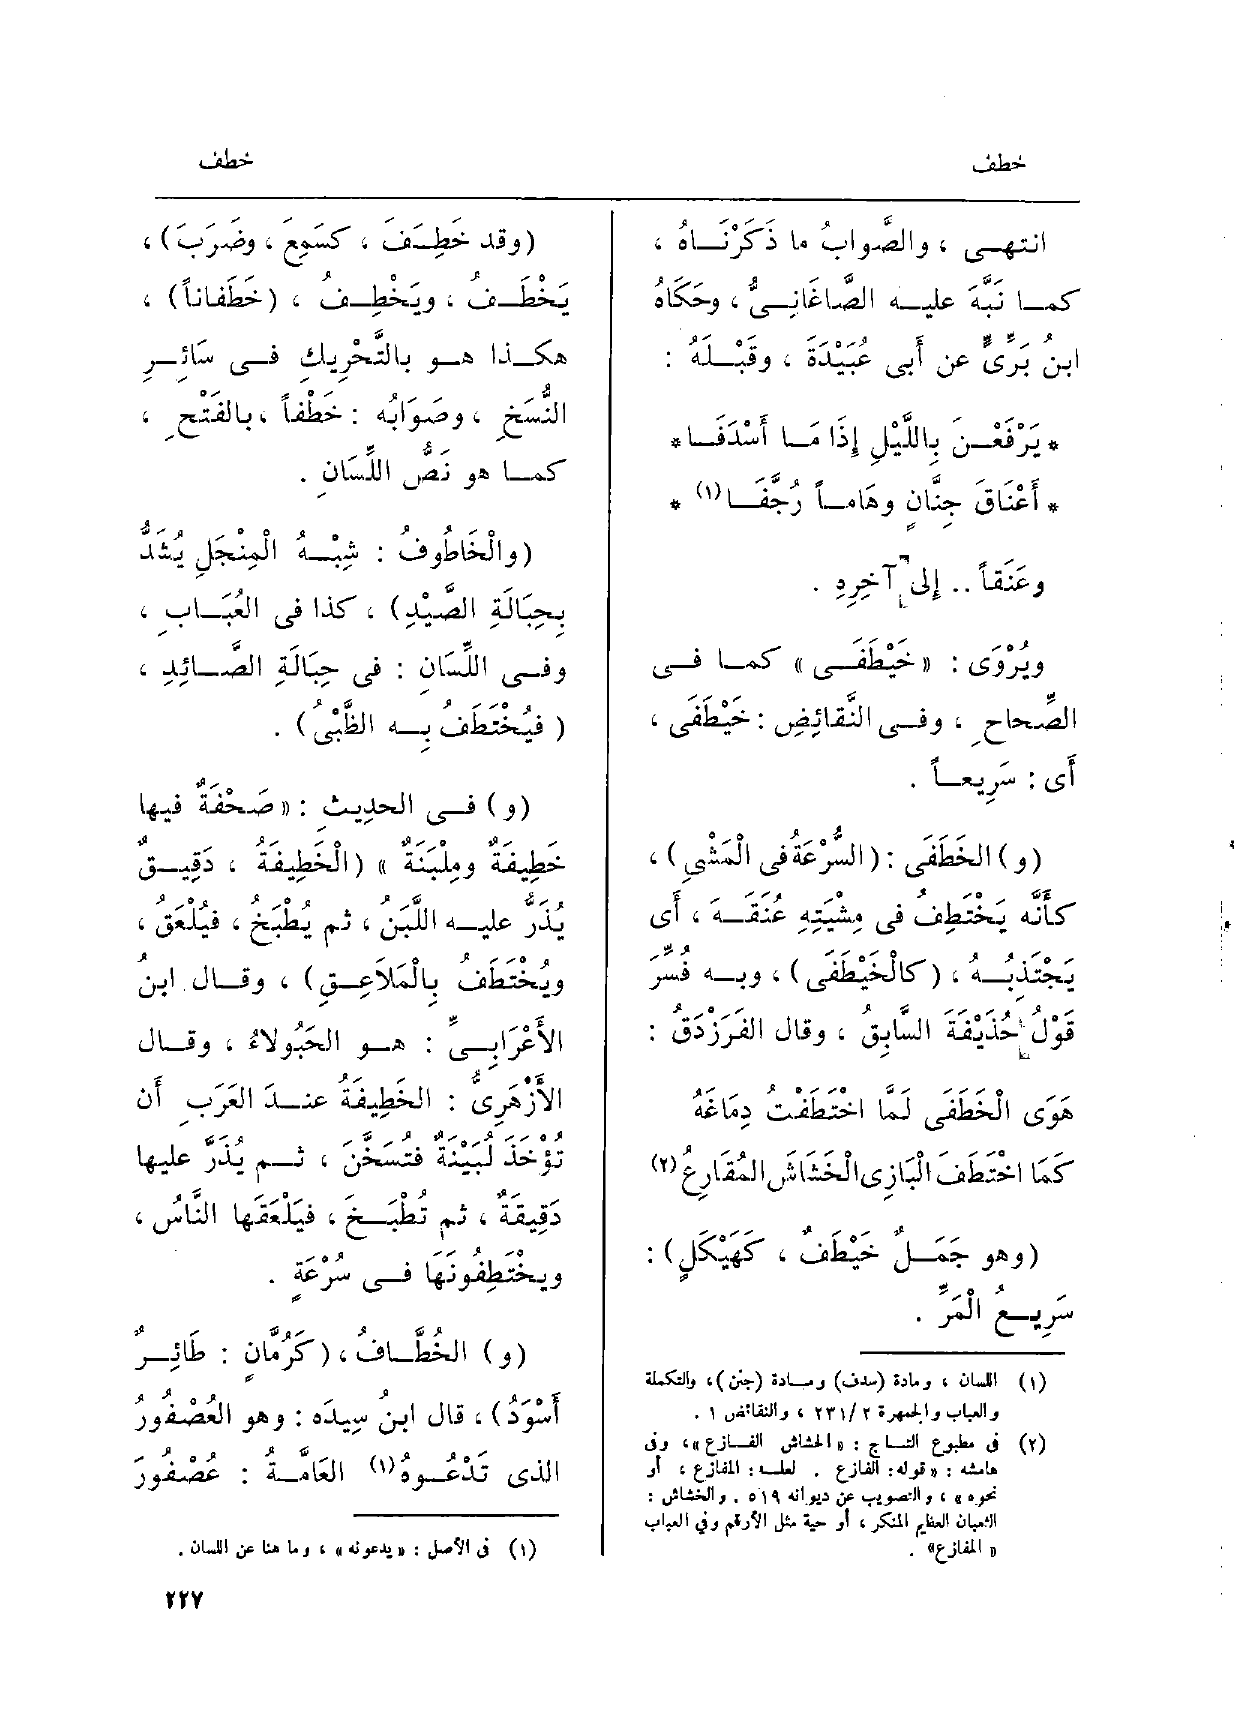 خطف
خطف
انتهى ، والصَّوابُ ما ذَكَرْنَاهُ ،
كما نَبَّهَ عليه الصَّاغَانِىُّ ، وحَكَاهُ
ابنُ بَرِّىٍّ عن أَبى عُبَيْدَةَ ، وقَبْلَهُ :
* يَرْفَعْنَ بِاللَّيْلِ إِذَا مَا أَسْدَفَا *
* أَعْنَاقَ جِنَّانٍ وهَاماً رُجَّفَا (١) *
وعَنَقاً .. إلى آخِرِهِ .
ويُرْوَى : « خَيْطَفَى » كما فى
الصِّحاحِ ، وفى النَّقائِضِ : خَيْطَفَى ،
أَى : سَرِيعاً .
(و) الخَطَفَى : (السُّرْعَةُ فى المَشْىِ) ،
كأَنَّه يَخْتَطِفُ فى مِشْيَتِهِ عُنَقَهُ ، أَى
يَجْتَذِبُهُ ، (كالخَيْطَفَى) ، وبه فُسِّرَ
قَوْلُ حُذَيْفَةَ السَّابِقُ ، وقال الفَرَزْدَقُ :
هَوَى الْخَطَفَى لَمَّا اخْتَطَفْتُ دِمَاغَهُ
كَمَا اخْتَطَفَ الْبَازِى الْخَشَاشَ المُقَارِعُ (٢)
(وهو جَمَلٌ خَيْطَفٌ ، كَهَيْكَلٍ) :
سَرِيعُ الْمَرِّ .
(١) اللسان ، ومادة (سدف) ومادة (جنن) ، والتكملة
والعباب والجمهرة ٢/٢٣١ ، والنقائض ١ .
(٢) فى مطبوع التاج : « الخشاش الفازع » ، وفى
هامشه : « قوله : الفازع . لعله : المفازع ، أو
نحوه » ، والتصويب عن ديوانه ٥١٩ . والخشاش :
الثعبان العظيم المنكر ، أو حية مثل الأرقم وفي العباب
« المفازع » .
(وقد خَطِفَ ، كسَمِعَ ، وضَرَبَ) ،
يَخْطَفُ ، ويَخْطِفُ ، (خَطَفَاناً) ،
هكذا هو بالتَّحْرِيكِ فى سَائِرِ
النُّسَخِ ، وصَوَابُه : خَطْفاً ، بالفَتْحِ ،
كما هو نَصُّ اللِّسَانِ .
(والْخَاطُوفُ : شِبْهُ الْمِنْجَلِ يُشَدُّ
بِحِبَالَةِ الصَّيْدِ) ، كذا فى العُبَابِ ،
وفى اللِّسَانِ : فى حِبَالَةِ الصَّائِدِ ،
( فيُخْتَطَفُ بِه الظَّبْىُ) .
(و) فى الحديثِ : « صَحْفَةٌ فيها
خَطِيفَةٌ ومِلْبَنَةٌ » (الْخَطِيفَةُ ، دَقِيقٌ
يُذَرُّ عليه اللَّبَنُ ، ثم يُطْبَخُ ، فيُلْعَقُ ،
ويُخْتَطَفُ بالْمَلَاعِقِ) ، وقال ابنُ
الأَعْرَابِىِّ : هو الحَبُولَاءُ ، وقال
الأَزْهَرِىُّ : الخَطِيفَةُ عندَ العَرَبِ أَن
تُؤْخَذَ لُبَيْنَةٌ فتُسَخَّنَ ، ثم يُذَرَّ عليها
دَقِيقَةٌ ، ثم تُطْبَخَ ، فيَلْعَقَها النَّاسُ ،
ويخْتَطِفُونَهَا فى سُرْعَةٍ .
(و) الخُطَّافُ ، (كَرُمَّانٍ : طَائِرٌ
أَسْوَدُ) ، قال ابنُ سِيدَه : وهو العُصْفُورُ
الذى تَدْعُوهُ (١) العَامَّةُ : عُصْفُورَ
(١) فى الأصل : « يدعونه » ، وما هنا عن اللسان .
٢٢٧